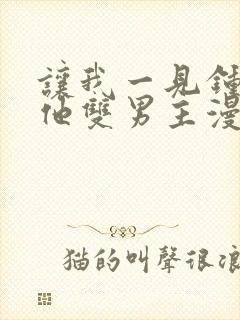 讓我一見鍾
他雙男主漫
猫的叫聲很浪